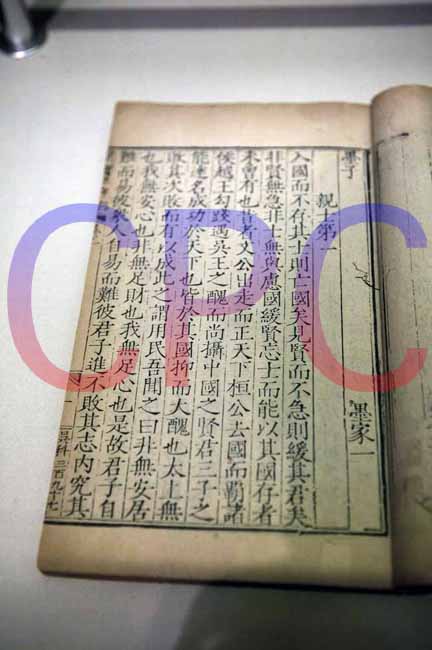 墨子 墨家一
親士第一
入國而不存其士則亡國矣見賢而不急則緩其君矣
非賢無急非士無與慮國緩賢忘士而能以其國存者
未曾有也昔者文公出走而正天下桓公去國而霸諸
侯越王勾踐遇吳王之醜而尚攝中國之賢君三子之
能達名成功於天下也皆於其國抑而大醜也太上無
敗其次敗而有以成此之謂用民吾聞之曰非無安居
也我無安心也非無足財也我無足心也是故君子自
難而易彼衆人自易而難彼君子進不敗其志內究其
CPC